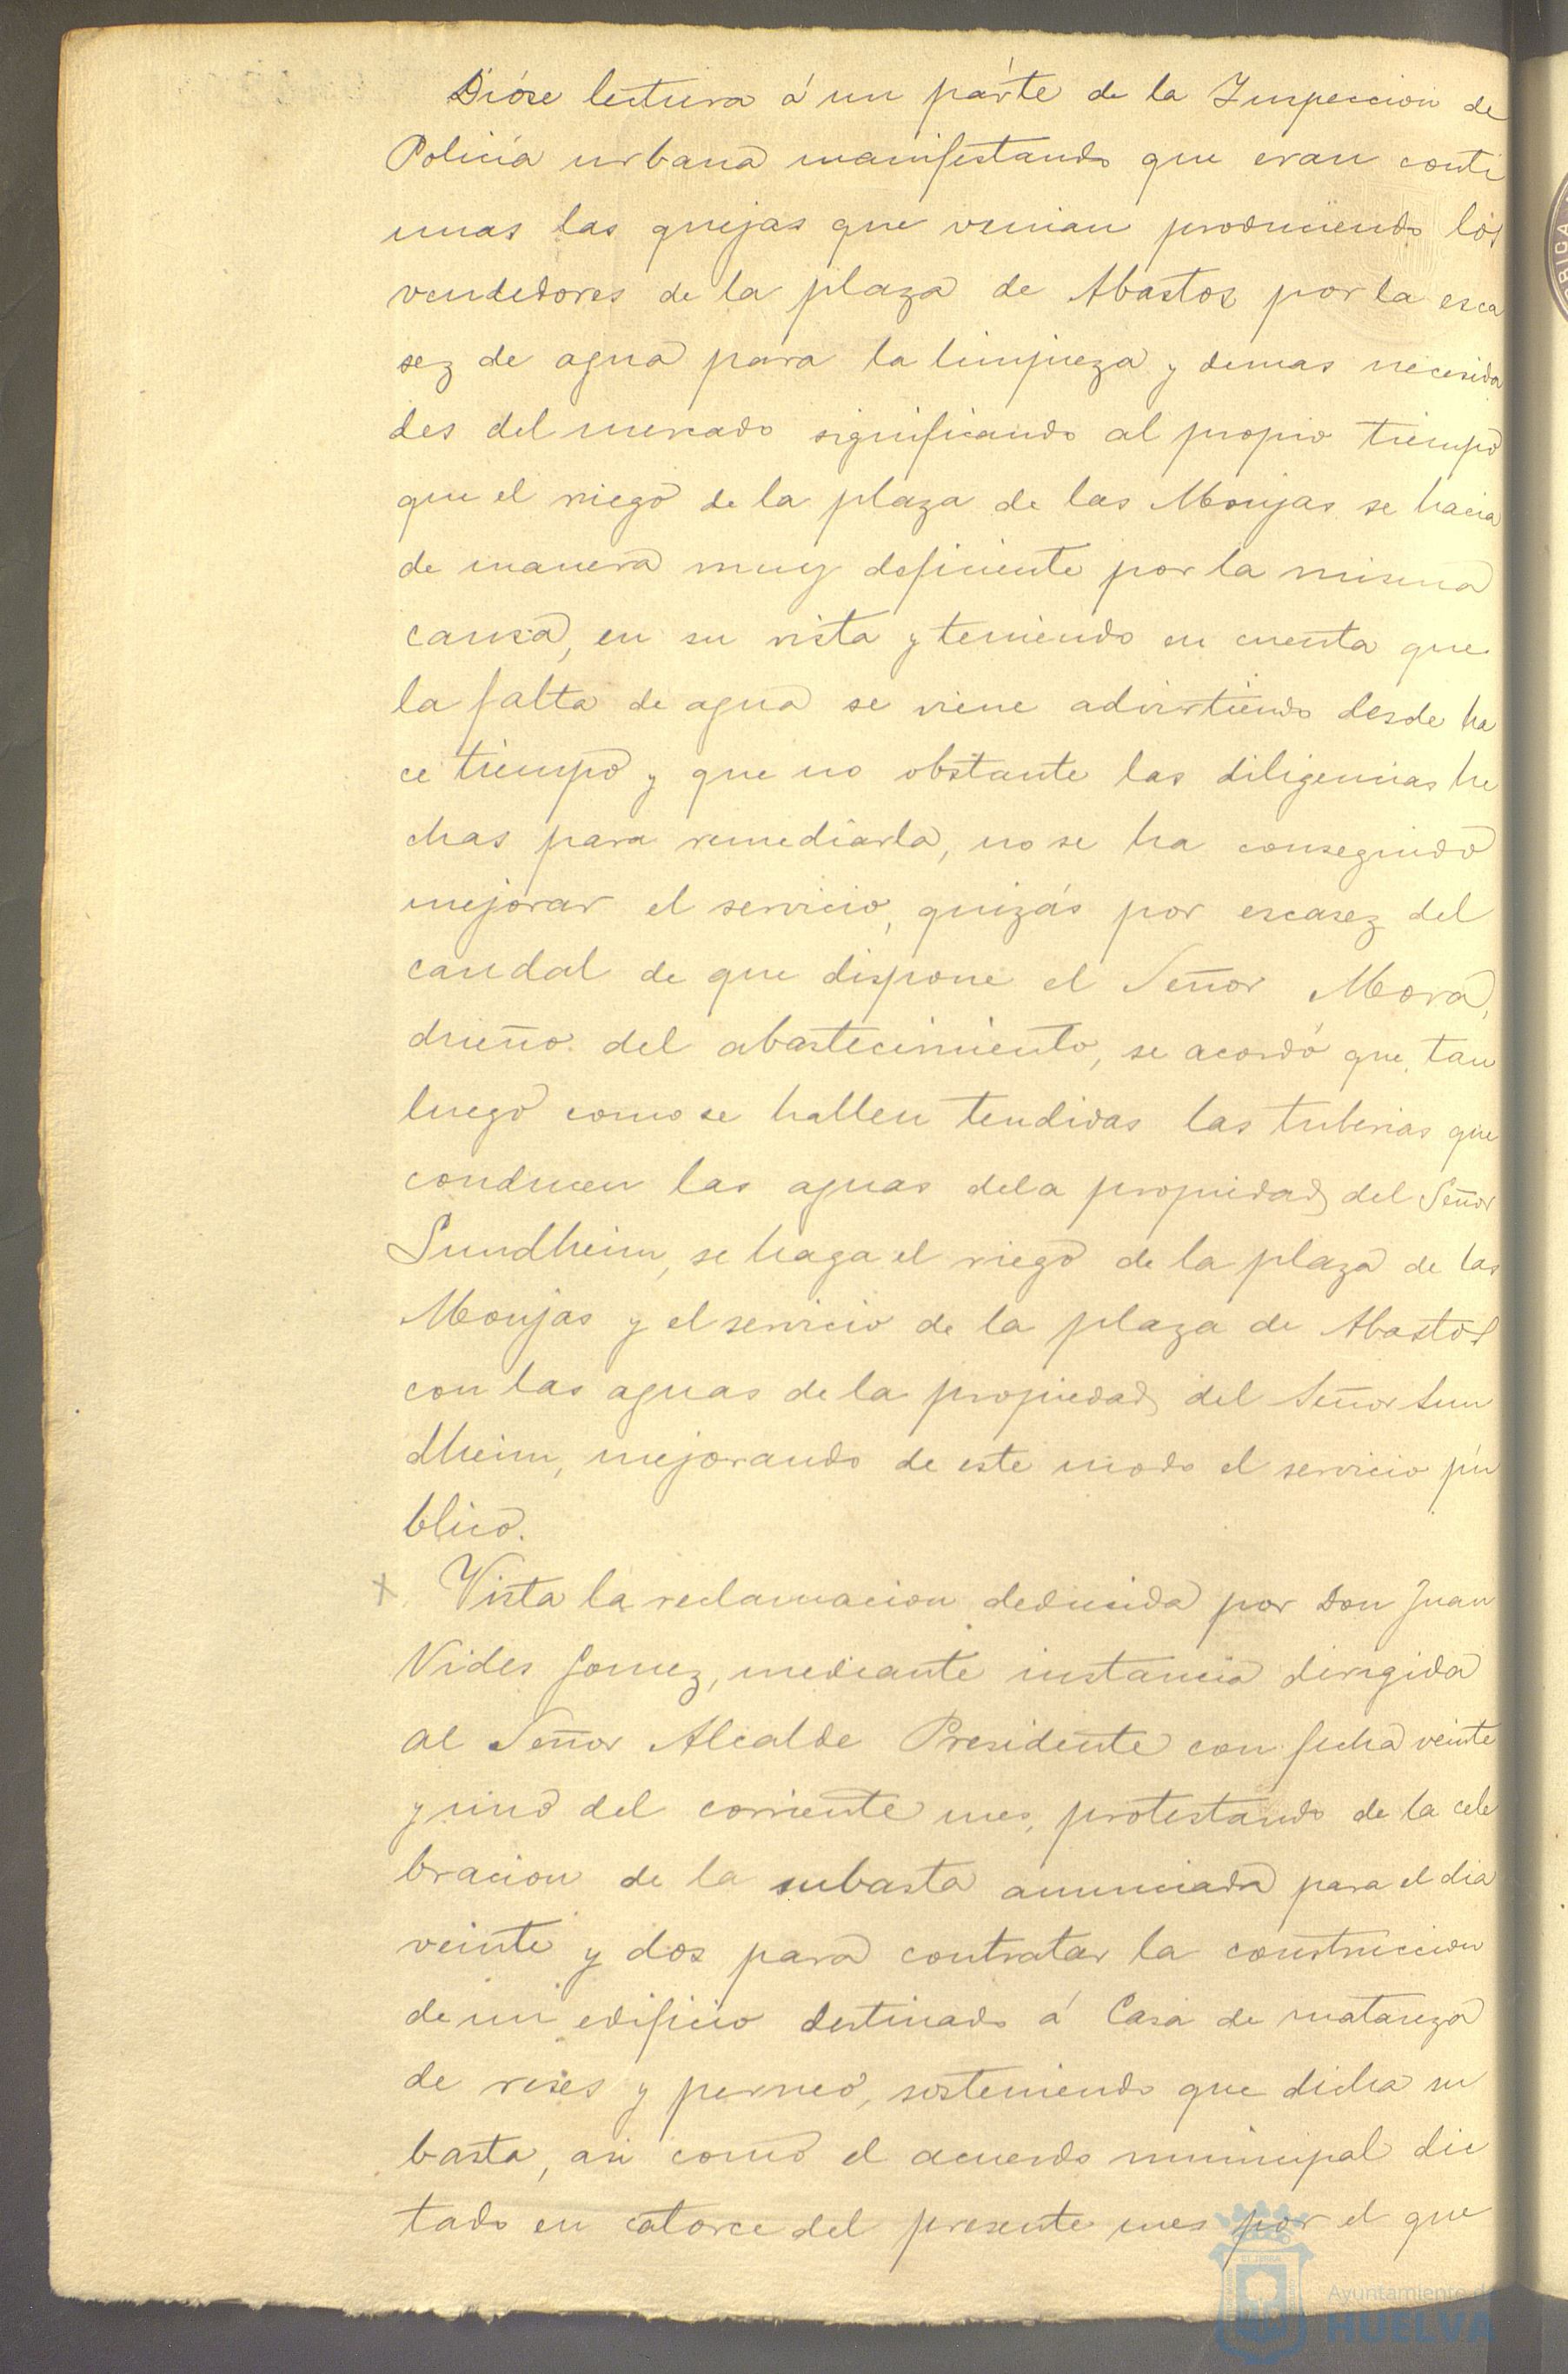 Dióse lectura á un parte de la Inspeccion de
Policia urbana manifestando que eran conti
nuas las quejas que venian produciendo los
vendedores de la plaza de Abastos por la esca
sez de agua para la limpieza y demas necesida
des del mercado significando al propio tiempo
que el riego de la plaza de las Monjas se hacia
de manera muy deficiente por la misma
causa, en su vista y teniendo en cuenta que
la falta de agua se viene advirtiendo desde ha
ce tiempo y que no obstante las diligencias he
chas para remediarla, no se ha conseguido
mejorar el servicio, quizás por escasez del
caudal de que dispone el Señor Mora,
dueño del abastecimiento, se acordó que, tan
luego como se hallen tendidas las tuberias que
conducen las aguas de la propiedad del Señor
Sundheim, se haga el riego de la plaza de las
Monjas y el servicio de la plaza de Abastos
con las aguas de la propiedad del Señor Sun
dheim, mejorando de este modo el servicio pú
blico.
x Vista la reclamacion deducida por Don Juan
Vides Gomez, mediante instancia dirigida
al Señor Alcalde Presidente con fecha veinte
y uno del corriente mes, protestando de la cele
bracion de la subasta anunciada para el dia
veinte y dos para contratar la construccion
de un edificio destinado á Casa de matanza
de reses y perneo, sosteniendo que dicha su
basta, asi como el acuerdo municipal dic
tado en catorce del presente mes por el que
Ayuntamiento de
HUELVA